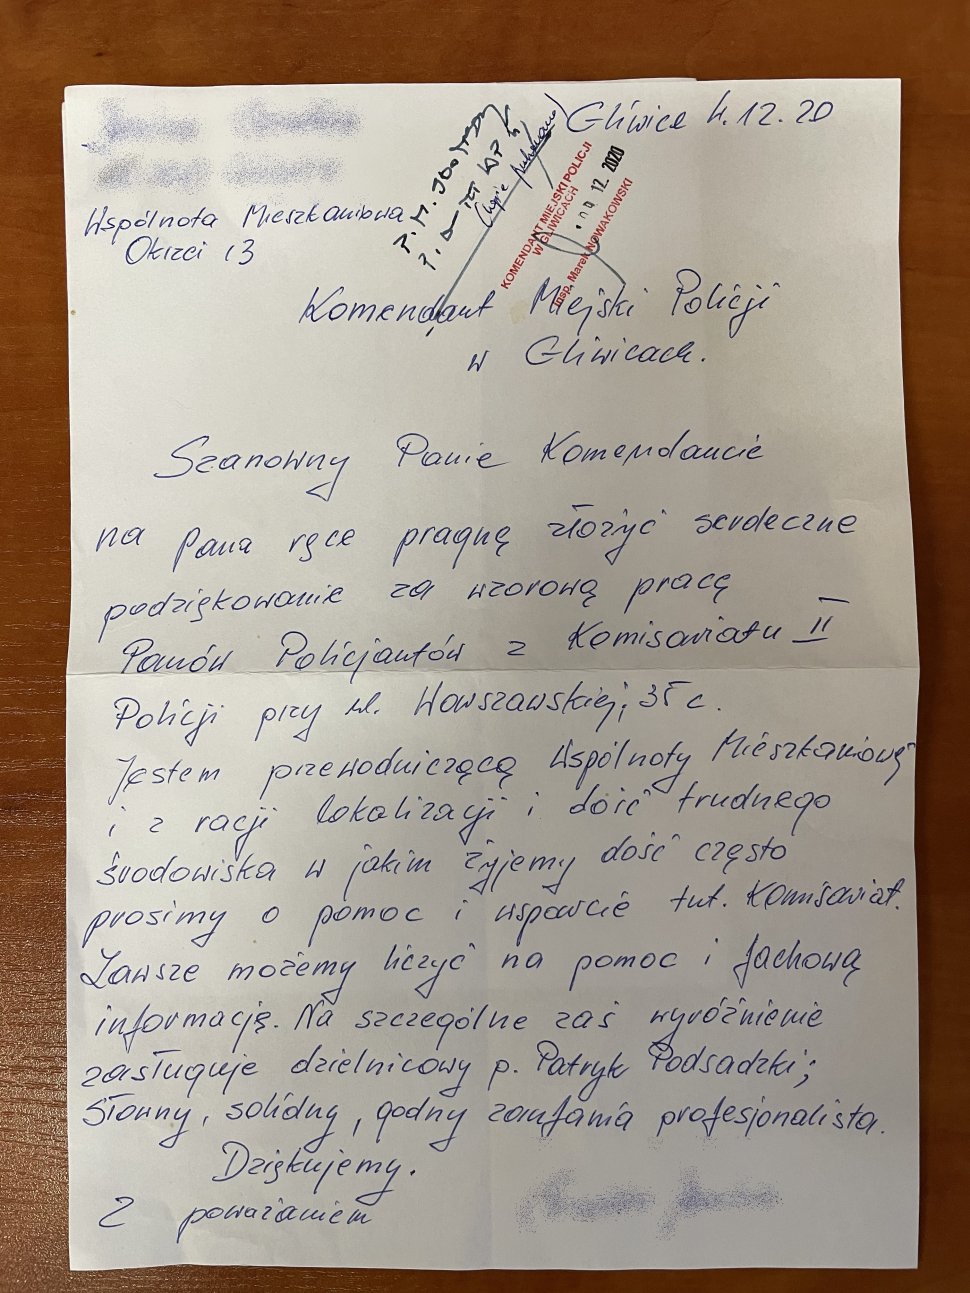 Gliwice 4.12.20
Wspólnota Mieszkaniowa
Okrzei 13
KOMENDANT MIEJSKI POLICJI
W GLIWICACH
12. 2020
insp. Marek NOWAKOWSKI
Komendant Miejski Policji
w Gliwicach.
Szanowny Panie Komendancie
na Pana ręce pragnę złożyć serdeczne
podziękowanie za wzorową pracę
Panów Policjantów z Komisariatu II
Policji przy ul. Warszawskiej; 35 c.
Jestem przewodniczącą Wspólnoty Mieszkaniowej
i z racji lokalizacji i dość trudnego
środowiska w jakim żyjemy dość często
prosimy o pomoc i wsparcie tut. Komisariat.
Zawsze możemy liczyć na pomoc i fachową
informację. Na szczególne zaś wyróżnienie
zasługuje dzielnicowy p. Patryk Podsadzki;
słowny, solidny, godny zaufania profesjonalista.
Dziękujemy.
Z poważaniem